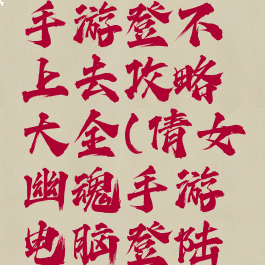 手游登不
上去攻略
大全(倩女
幽魂手游
电脑登陆